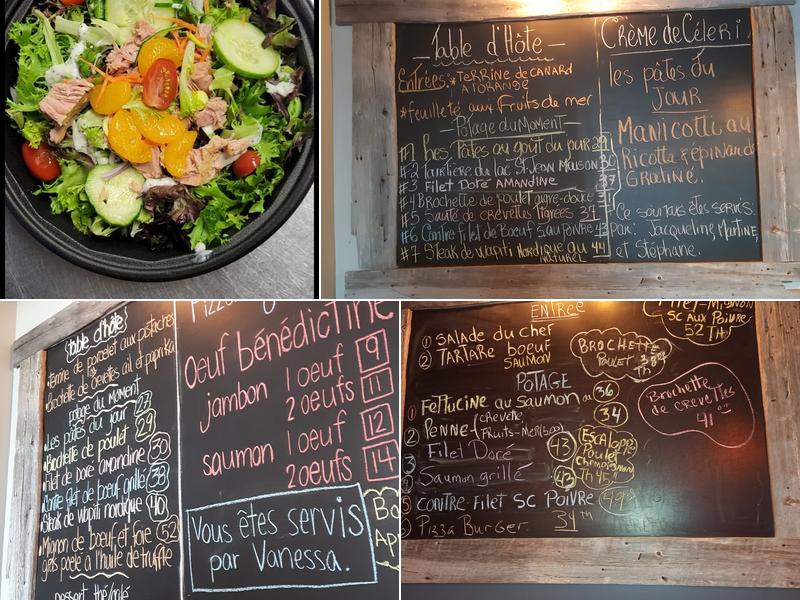 Table d'Hôte
Entrées: * TERRINE de CANARD
A L'ORANGE
* feuilleté aux Fruits de mer
Potage du Moment
#1 Les Pâtes au goût du jour 29
#2 Tourtière du lac St-Jean Maison 30
#3 Filet Doré AMANDINE 37
#4 Brochette de poulet aigre-douce 31
#5 Sauté de crevettes Tigrées 31
#6 Contre filet de Boeuf S. au POIVRE 43
#7 Steak de Wapiti Nordique au 44
NATUREL
Crème de Céleri
les pâtes du
JOUR
Manicotti au
Ricotta & épinards
GRATINÉ!
Ce soir vous êtes servis
Par: Jacqueline, Martine,
et Stéphane.
table d'hôte
Terrine de porcelet aux pistaches
Brochette de crevettes ail et paprika
potage du moment
Les pâtes du jour 23
Brochette de poulet 29
Filet de doré amandine 30
Contre filet de boeuf grillé 38
Steak de wapiti nordique 40
Mignon de boeuf et foie 52
gras poêlé à l'huile de truffe
dessert thé/café
Pizza
Oeuf bénédictine
jambon 1 oeuf 9
2 oeufs 11
saumon 1 oeuf 12
2 oeufs 14
Vous êtes servis
par Vanessa.
ENTREE
① SALADE du chef
② TARTARE boeuf
SAUMON
POTAGE
① Fettucine au Saumon 36
② Penne crevette 34
Fruits-Mer (5.00)
③ Filet Doré 43
④ Saumon grillé 43
⑤ CONTRE Filet SC Poivre 49
Pizza Burger 34 TH
BROCHETTE
POULET 38 TH
Escaloppe
Poulet
champignons
TH 45
Filet-Mignon
SC AUX POIVRE
52 TH
Brochette
de crevettes
41